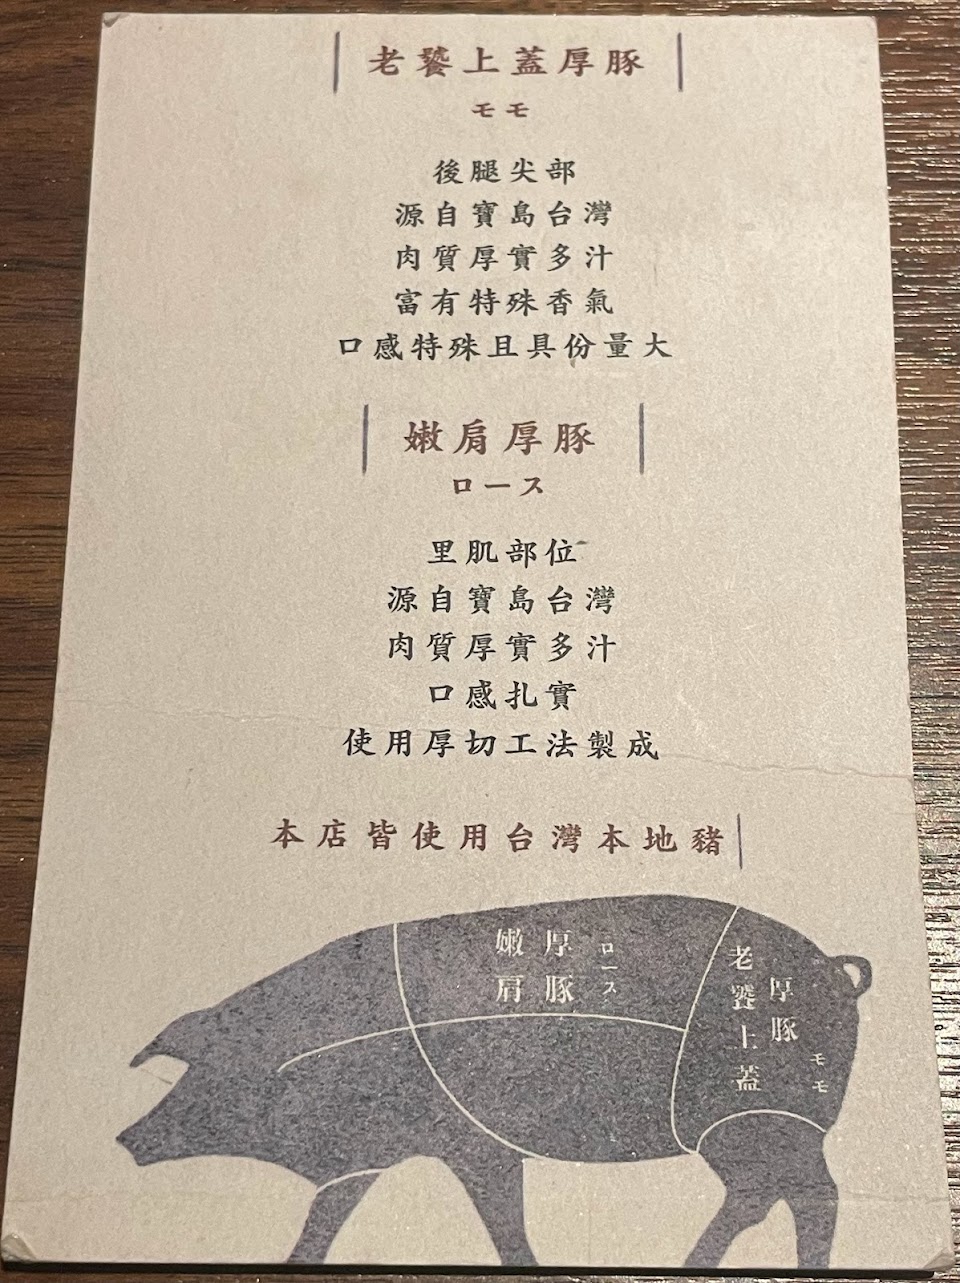 老饕上蓋厚豚
モモ
後腿尖部
源自寶島台灣
肉質厚實多汁
富有特殊香氣
口感特殊且具份量大
嫩肩厚豚
ロース
里肌部位
源自寶島台灣
肉質厚實多汁
口感扎實
使用厚切工法製成
本店皆使用台灣本地豬
嫩肩
厚豚
ロース
老饕上蓋
厚豚
モモ